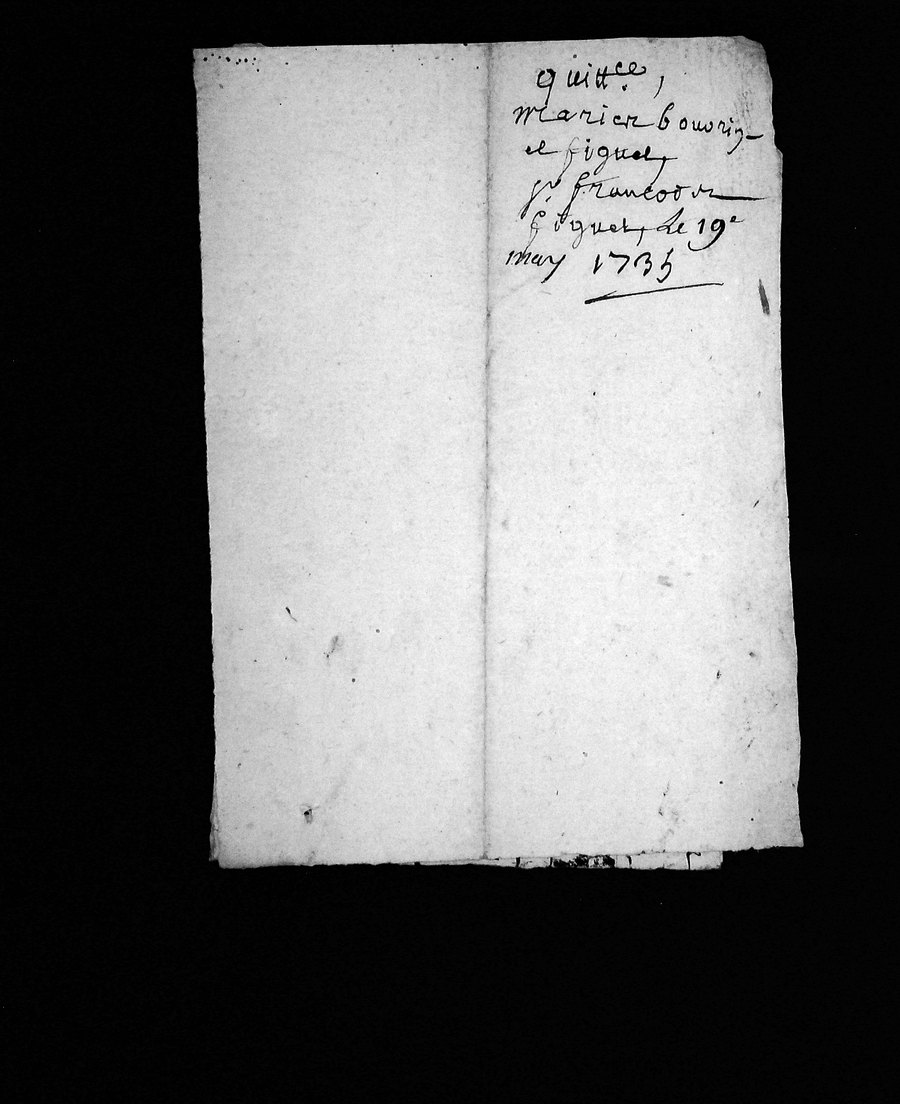 quittce,
mariee bouvrin
et figuet,
pr. francois
figuet, Le 19e
may 1735